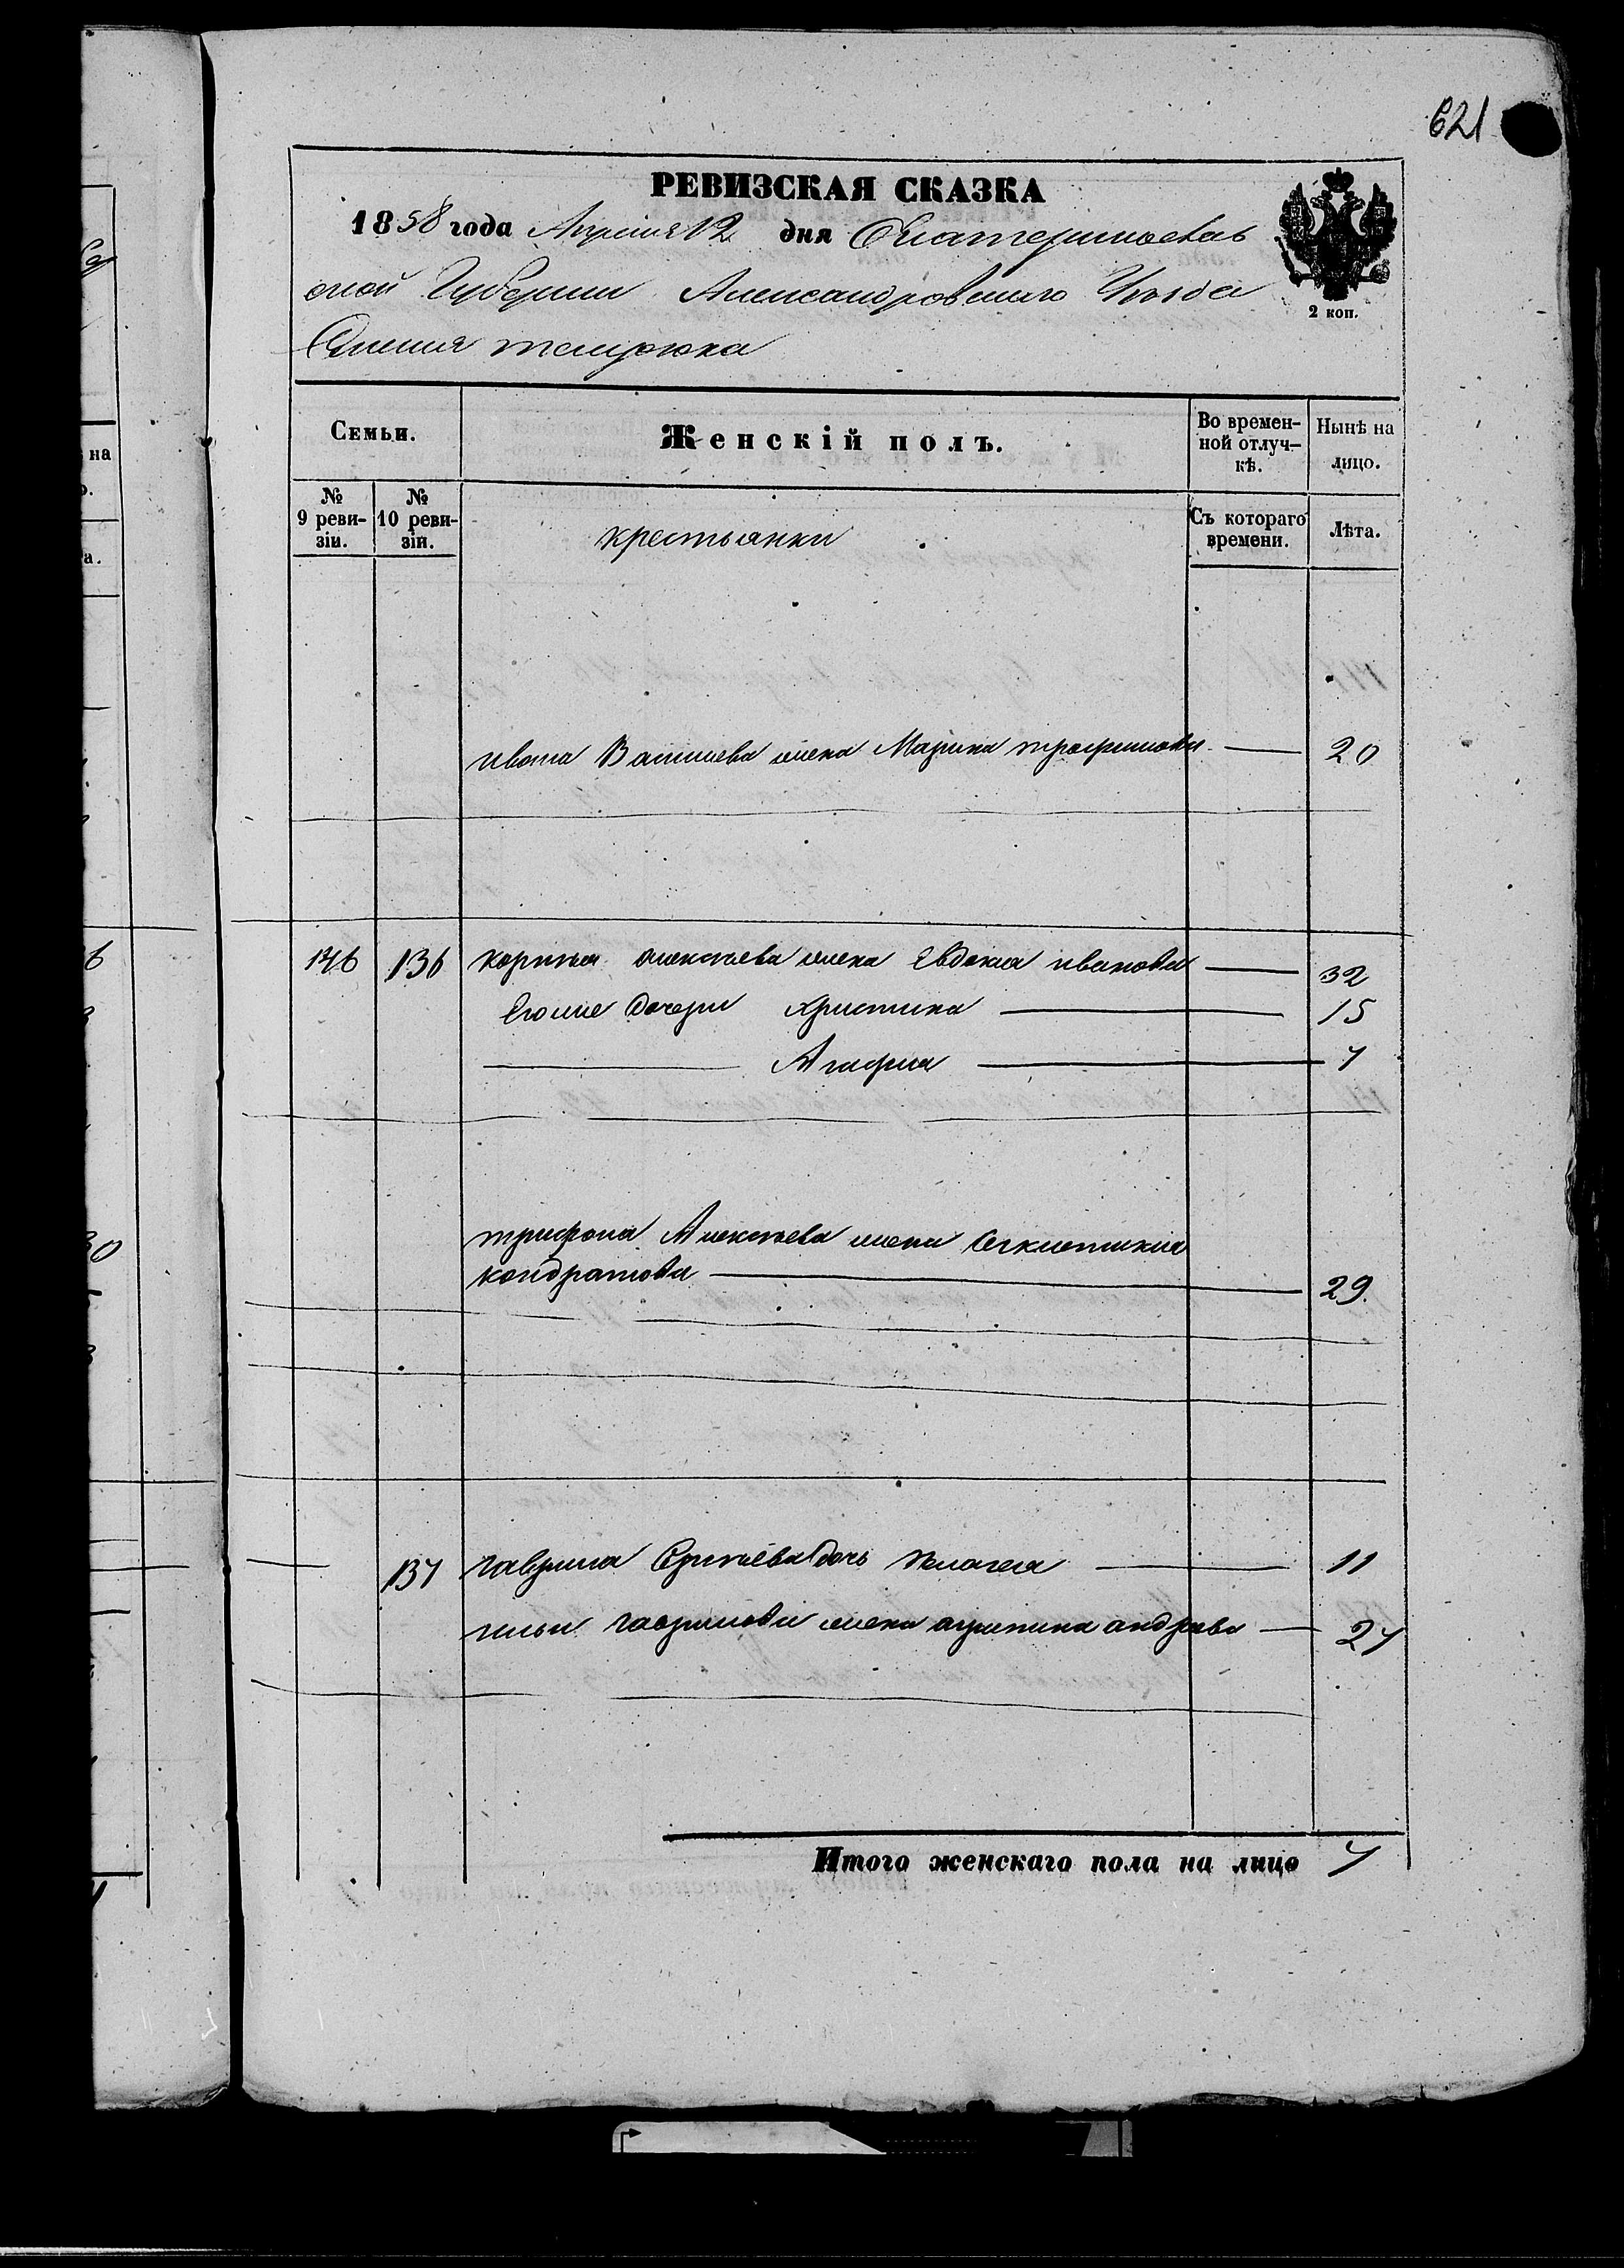 621
РЕВИЗСКАЯ СКАЗКА
1858 года Апреля 12 дня Екатеринослав
ской Губернии Александровского Уъзда
Селения темрюка
2 коп.
Семьи.
Женскій полъ.
Во времен-
ной отлуч-
кѣ.
Нынѣ на
лицо.
№
9 реви-
зіи.
№
10 реви-
зіи.
крестьянки
Съ котораго
времени.
Лѣта.
ивана Василиева жена Марина трофимова 20
146 136 корнѣя алексѣева жена Евдокия иванова 32
Егоже дочери христина 15
Агафия 7
трифона Алексѣева жена
кондратова 29.
137 гаврила дочь пелагея 11
ильи гаврилова жена агрипина андрѣева 27
Итого женскаго пола на лицо 7